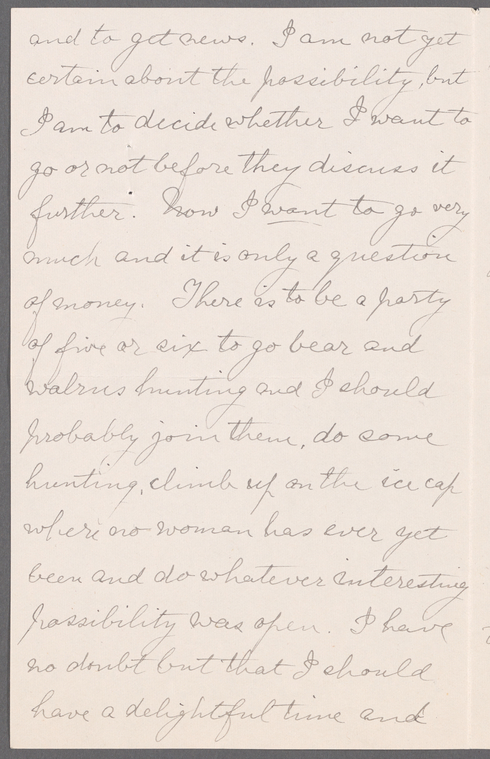 and to get news. I am not yet
certain about the possibility, but
I am to decide whether I want to
go or not before they discuss it
further. Now I want to go very
much and it is only a question
of money. There is to be a party
of five or six to go bear and
walrus hunting and I should
probably join them, do some
hunting, climb up on the ice cap
where no woman has ever yet
been and do whatever interesting
possibility was open. I have
no doubt but that I should
have a delightful time and